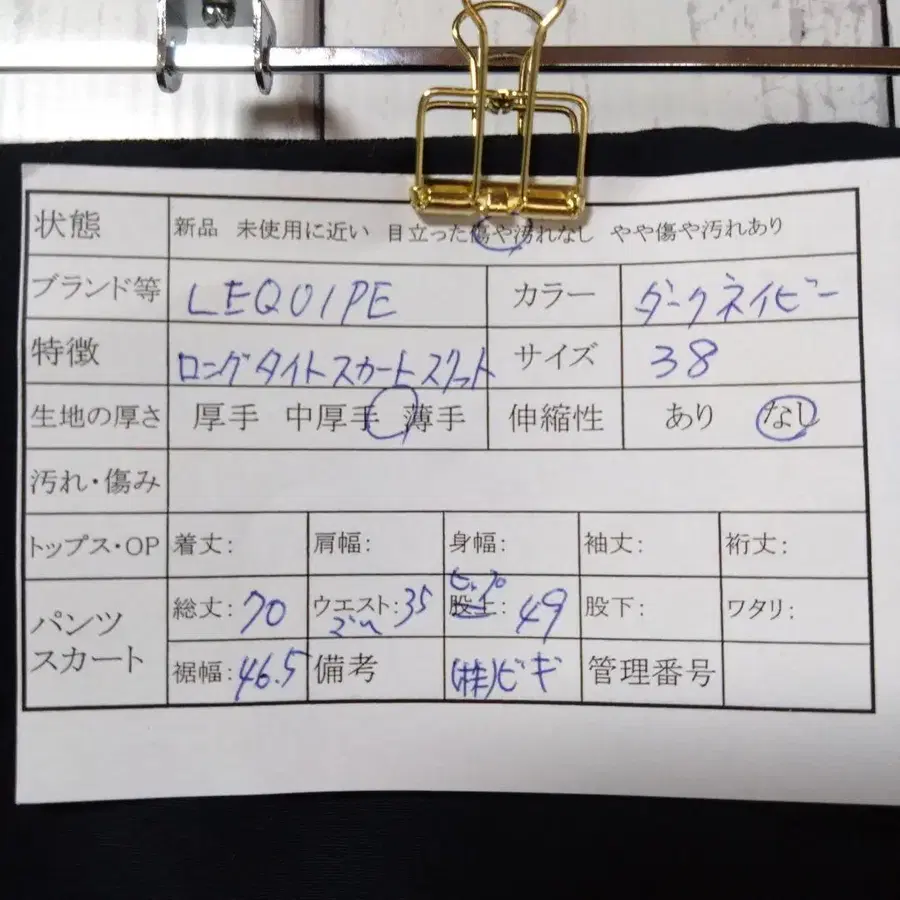 状態 新品 未使用に近い 目立った傷や汚れなし やや傷や汚れあり
ブランド等 LEQUIPE カラー ダークネイビー
特徴 ロングタイトスカート スリット サイズ 38
生地の厚さ 厚手 中厚手 薄手 伸縮性 あり なし
汚れ・傷み
トップス・OP 着丈: 肩幅: 身幅: 袖丈: 裄丈:
パンツ スカート 総丈: 70 ウエスト: 35 ゴム 股上: ヒップ 49 股下: ワタリ:
裾幅: 46.5 備考 (株)ビギ 管理番号